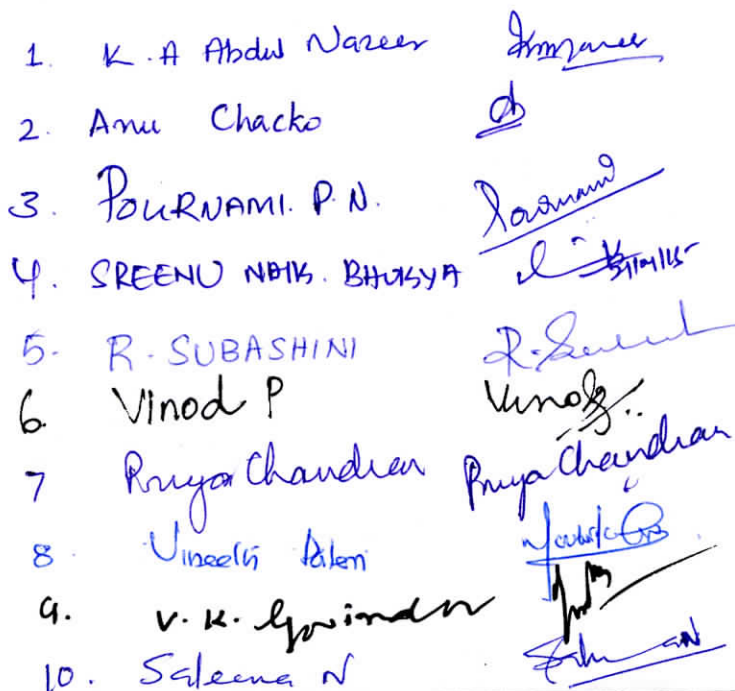 1. K.A Abdul Nazeer
2. Anu Chacko
3. POURNAMI. P. N. Pournami
4. SREENU NAIK. BHUKYA
5. R. SUBASHINI R.
6. Vinod P Vinod
7 Priya Chandran Priya Chandran
8. Vineeth
9. V. K. Govindan
10. Saleena N